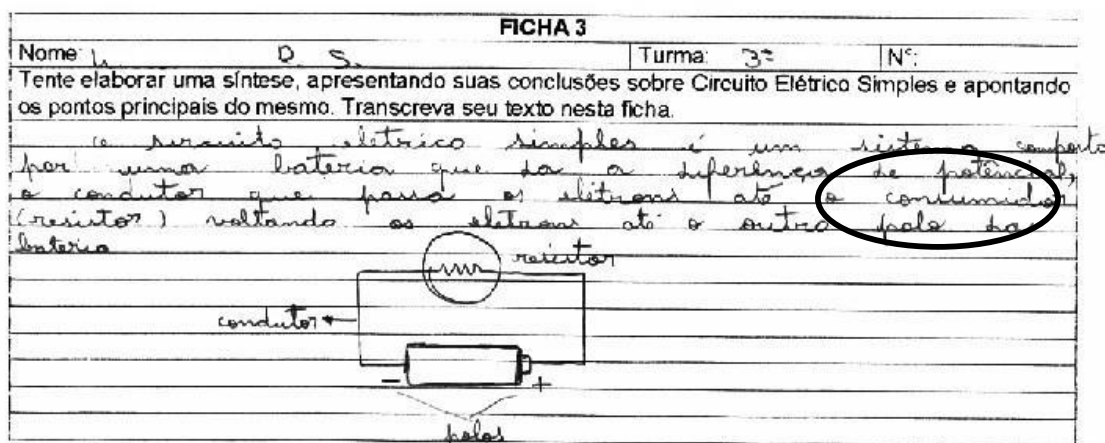 FICHA 3
Nome: L D. S. Turma: 3ª Nº:
Tente elaborar uma síntese, apresentando suas conclusões sobre Circuito Elétrico Simples e apontando
os pontos principais do mesmo. Transcreva seu texto nesta ficha.
eletrico simples é um sistema composto
por uma bateria que da a diferença de potencial,
o condutor que passa os elétrons até o consumidor
(resistor) voltando os eletrons até o outro polo da
bateria
resistor
condutor
- +
polos